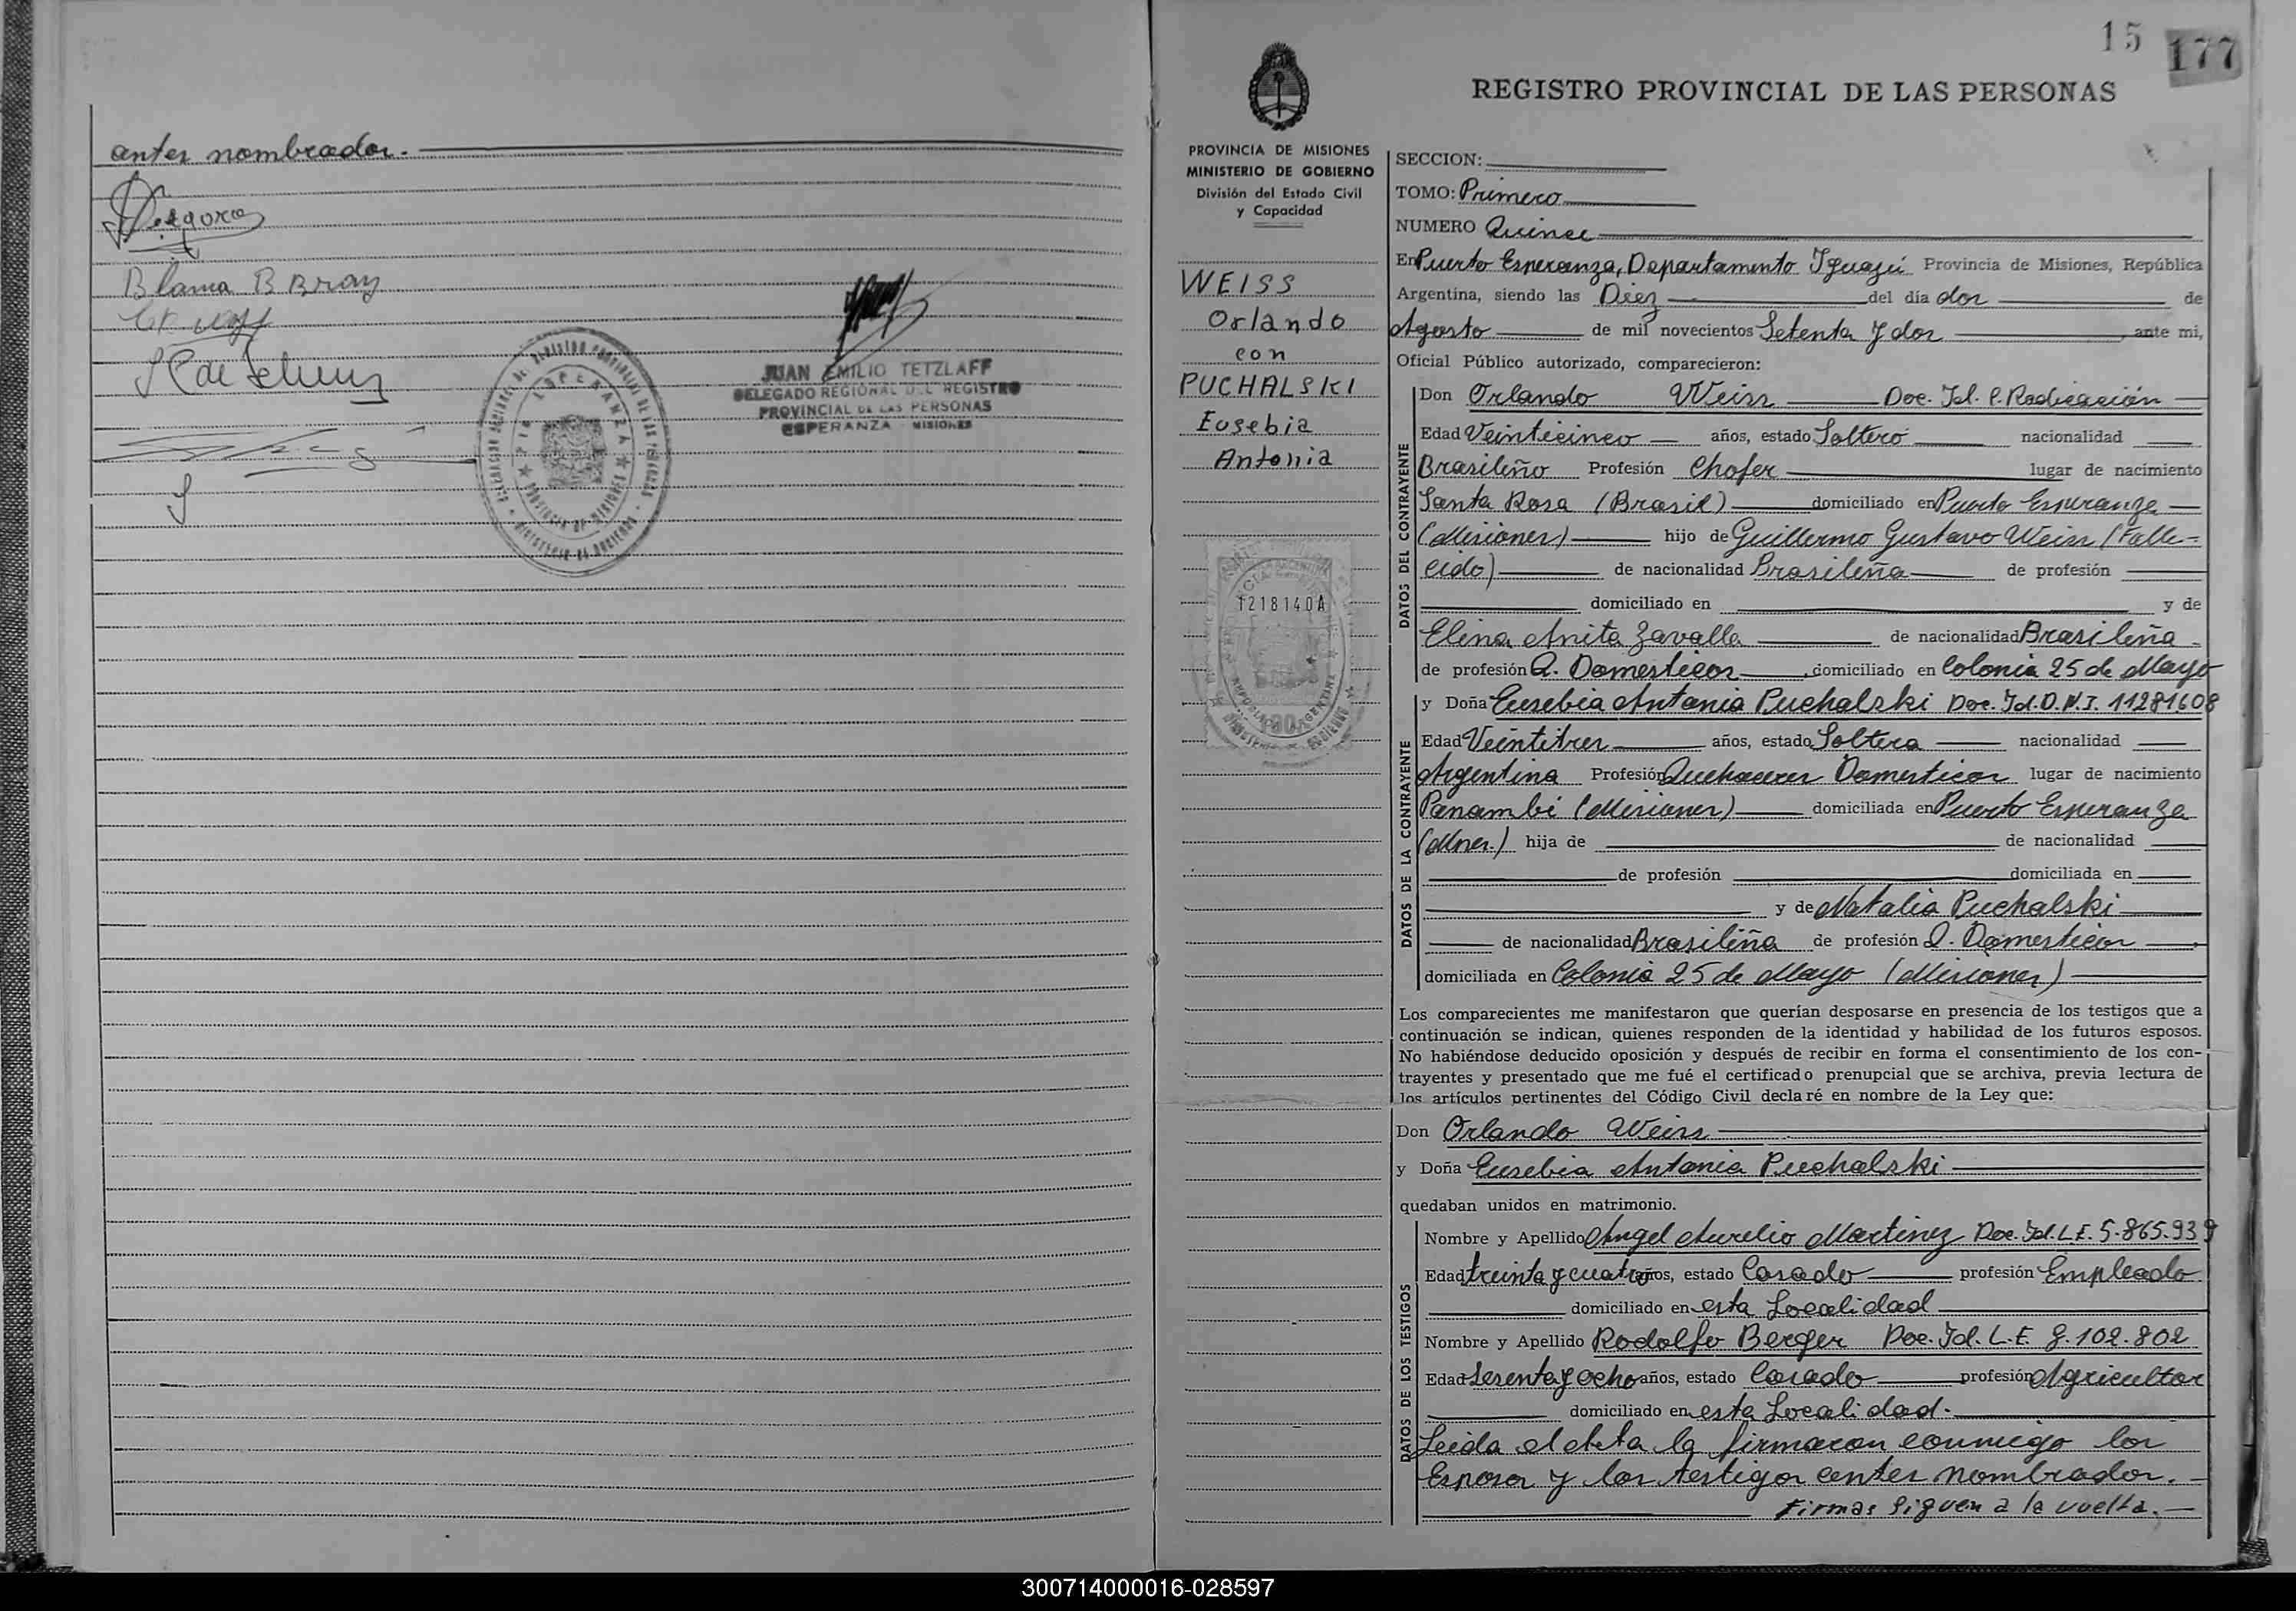 antes nombrados.
Blanca B Bray
JUAN EMILIO TETZLAFF
DELEGADO REGIONAL DEL REGISTRO
PROVINCIAL DE LAS PERSONAS
ESPERANZA - MISIONES
15
177
REGISTRO PROVINCIAL DE LAS PERSONAS
PROVINCIA DE MISIONES
MINISTERIO DE GOBIERNO
División del Estado Civil
y Capacidad
WEISS
Orlando
con
PUCHALSKI
Eusebia
Antonia
1218140A
SECCION:
TOMO: Primero
NUMERO Quince
En Puerto Esperanza, Departamento Iguazú Provincia de Misiones, República
Argentina, siendo las Diez del día dos de
Agosto de mil novecientos Setenta y dos ante mi,
Oficial Público autorizado, comparecieron:
DATOS DEL CONTRAYENTE
Don Orlando Weiss Doc. Id. P. Radicación
Edad Veinticinco años, estado Soltero nacionalidad
Brasileño Profesión Chofer lugar de nacimiento
Santa Rosa (Brasil) domiciliado en Puerto Esperanza
(Misiones) hijo de Guillermo Gustavo Weiss (Falle-
cido) de nacionalidad Brasileña de profesión
domiciliado en y de
Elina Anita Zavalla de nacionalidad Brasileña
de profesión Q. Domesticos domiciliado en Colonia 25 de Mayo
DATOS DE LA CONTRAYENTE
y Doña Eusebia Antonia Puchalski Doc. Id. D.N.I. 11281608
Edad Veintitres años, estado Soltera nacionalidad
Argentina Profesión Quehaceres Domesticos lugar de nacimiento
Panambi (Misiones) domiciliada en Puerto Esperanza
(Mnes.) hija de de nacionalidad
de profesión domiciliada en
y de Natalia Puchalski
de nacionalidad Brasileña de profesión Q. Domesticos
domiciliada en Colonia 25 de Mayo (Misiones)
Los comparecientes me manifestaron que querían desposarse en presencia de los testigos que a
continuación se indican, quienes responden de la identidad y habilidad de los futuros esposos.
No habiéndose deducido oposición y después de recibir en forma el consentimiento de los con-
trayentes y presentado que me fué el certificado prenupcial que se archiva, previa lectura de
los artículos pertinentes del Código Civil declaré en nombre de la Ley que:
Don Orlando Weiss
y Doña Eusebia Antonia Puchalski
quedaban unidos en matrimonio.
DATOS DE LOS TESTIGOS
Nombre y Apellido Angel Aurelio Martinez Doc. Id. L.E. 5.865.939
Edad treinta y cuatro años, estado Casado profesión Empleado
domiciliado en esta Localidad
Nombre y Apellido Rodolfo Berger Doc. Id. L.E. 8.102.802
Edad Sesenta y ocho años, estado Casado profesión Agricultor
domiciliado en esta Localidad.
Leida el Acta la firmaron conmigo los
Esposos y los testigos antes nombrados.
Firmas siguen a la vuelta.
300714000016-028597